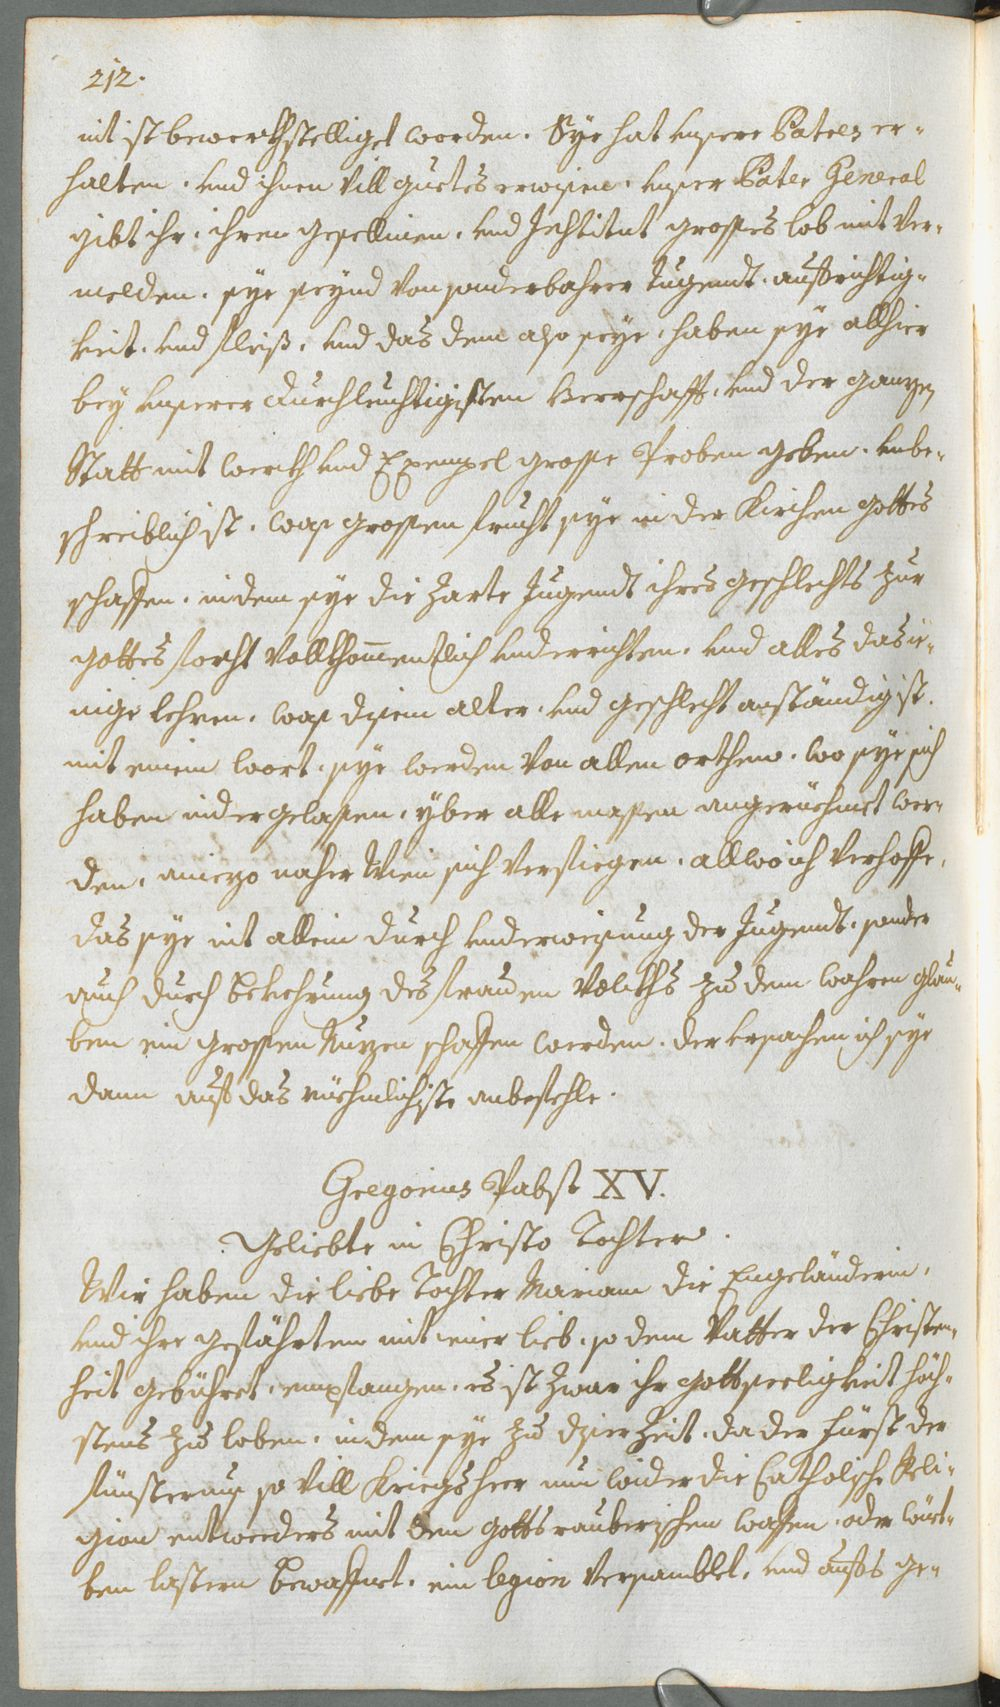 212.
nit ist bewerckhstelliget worden. Sye hat unsere Patres er-
halten, und ihnen vill guetes erwisen, unser Pater General
gibt ihr, ihren gesellinen, und Institut grosses lob mit ver-
melden, sye seynd von sonderbahrer tugendt, auffrichtig-
keit, und fleiß, und das dem also seye, haben sye allhier
bey unserer durchleuchtigisten Herrschafft, und der ganzen
Statt mit werckh und Exempel grosse Proben geben. unbe-
schreiblich ist, was grossen frucht sye in der Kirchen gottes
schaffen, indem sye die zarte Jugendt ihres geschlechts zur
gottes forcht vollkhommentlich underrichten, und alles dasie-
nige lehren, was disem alter, und geschlecht anständig ist.
mit einem wort, sye werden von allen orthen, wo sye sich
haben nider gelassen, yber alle massen angerüehmet wer-
den, aniezo naher Wien sich verfiegen, allwo ich verhoffe,
das sye nit allein durch underweisung der Jugendt, sonder
auch durch bekehrung des frauen volckhs zu dem wahren glau-
ben ein grossen Nuzen schaffen werden. der ursachen ich sye
dann auff das rüehmlichiste anbefehle.
Gregorius Pabst XV.
Geliebte in Christo Tochter.
Wir haben die liebe Tochter Mariam die Engeländerin,
und ihre gefährten mit einer lieb, so dem Vatter der Christen-
heit gebühret, empfangen, es ist zwar ihr gottseeligkeit höch-
stens zu loben, indem sye zu diser Zeit, da der fürst der
finsternus so vill kriegsheer nun wider die Catholische Reli-
gion entweders mit den gottsrauberischen waffen, oder
ben lastern bewaffnet, ein legion versamblet, und auffs ge-